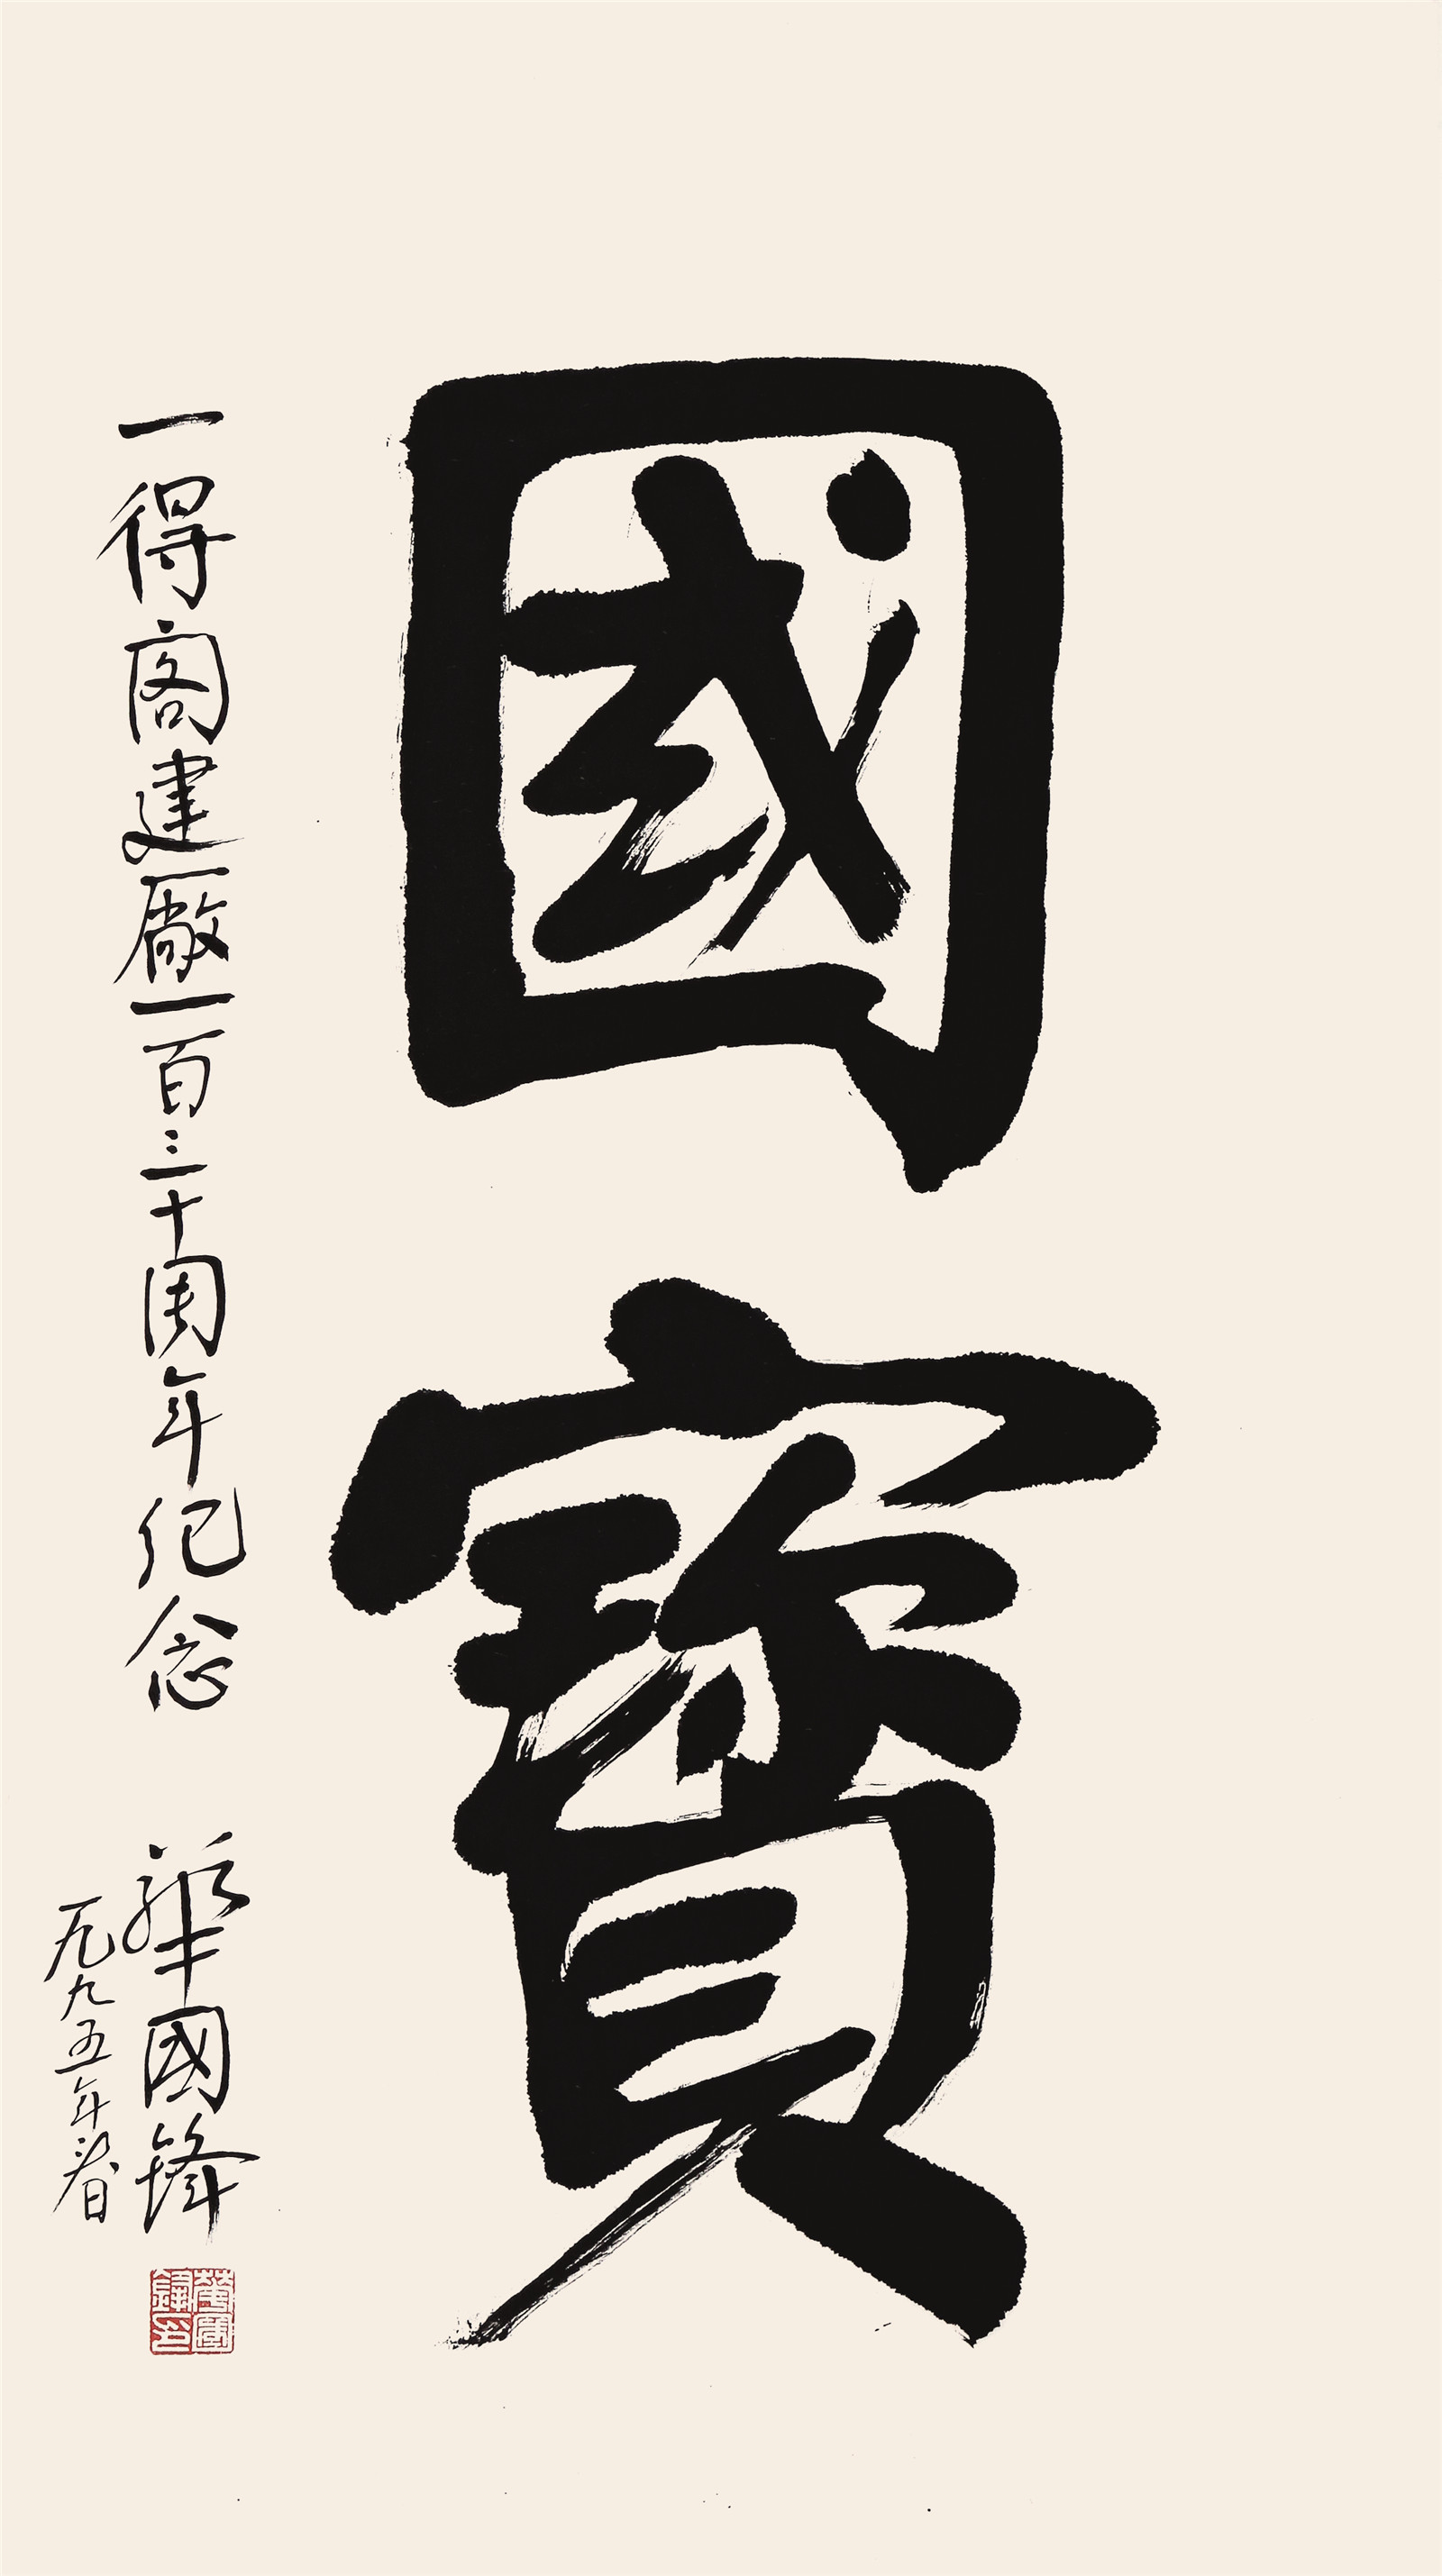 國寳
一得阁建廠一百三十周年纪念
華國鋒
一九九五年春
華國鋒印